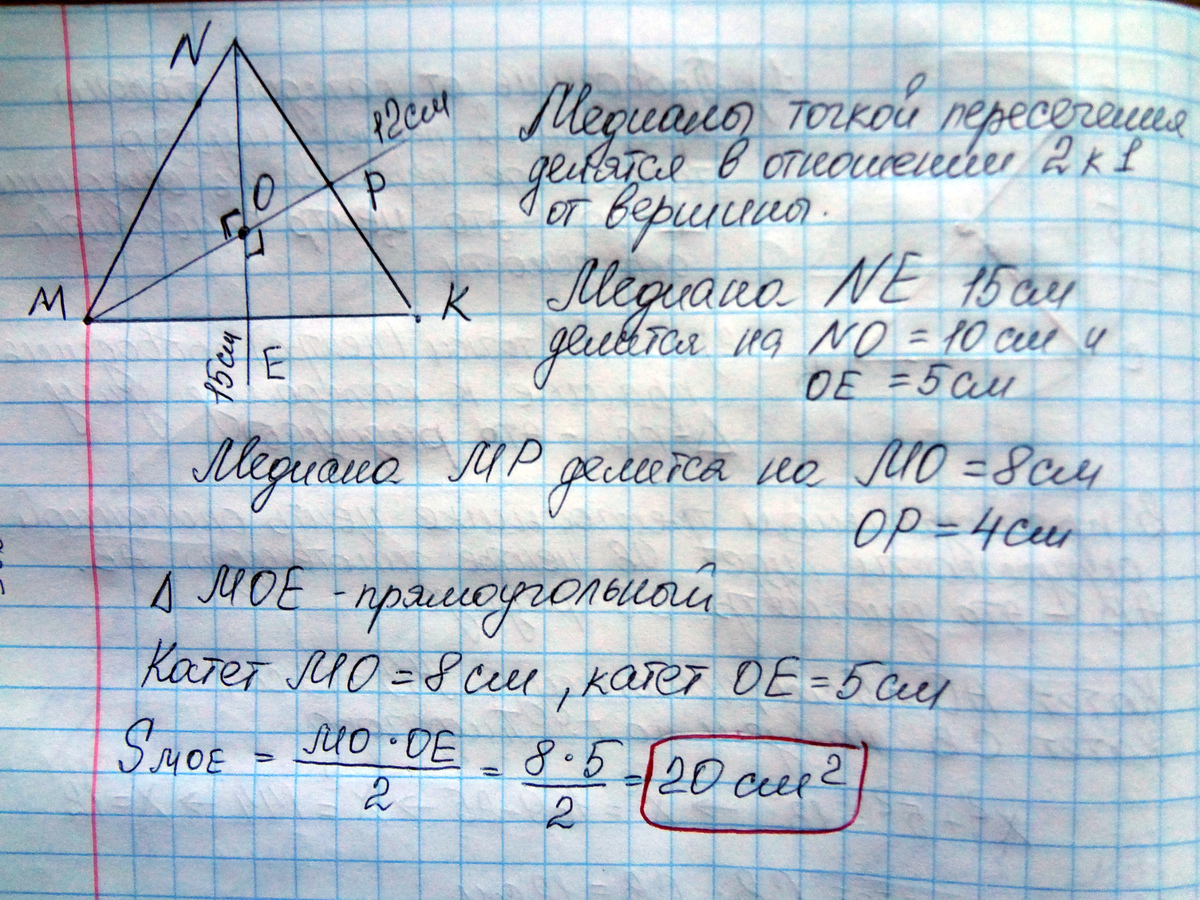 N
12см
O
P
M
K
15см
E
Медианы точкой пересечения
делятся в отношении 2 к 1
от вершины.
Медиана NE 15см
делится на NO = 10см и
OE = 5см
Медиана MP делится на MO = 8см
OP = 4см
Δ MOE - прямоугольный
Катет MO = 8см, катет OE = 5см
SMOE = MO · OE / 2 = 8 · 5 / 2 = 20 см²